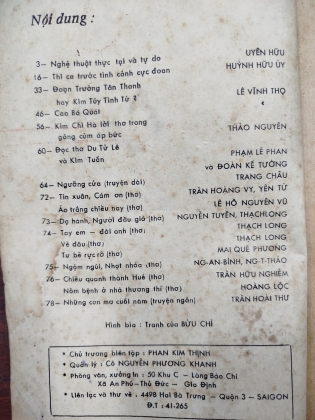 Nội dung :
3— Nghệ thuật thực tại và tự do UYÊN HỮU
16— Thi ca trước tình cảnh cực đoan HUỲNH HỮU ỦY
33— Đoạn Trường Tân Thanh
hay Kim Túy Tình Từ LÊ VĨNH THỌ
46— Cao Bá Quát
56— Kim Chi Hà lời thơ trong
gông cùm áp bức THẢO NGUYÊN
60— Đọc thơ Du Tử Lê PHẠM LÊ PHAN
và Kim Tuấn và ĐOÀN KẾ TƯỜNG
64— Ngưỡng cửa (truyện dài) TRANG CHÂU
72— Tin xuân, Cám ơn (thơ) TRẦN HOÀNG VY, YÊN TỬ
Áo trắng chiều nay (thơ) LÊ HỒ NGUYÊN VŨ
73— Dạ hành, Người đầu gió (thơ) NGUYỄN TUYỂN, THẠCH LONG
74— Tay em — đôi anh (thơ) THẠCH LONG
Về đâu (thơ) THẠCH LONG
Tu bê rực rỡ (thơ) MAI QUẾ PHƯƠNG
75— Ngậm ngùi, Nhạt nhòa (thơ) NG-AN-BÌNH, NG-T-THẢO
76— Chiều quanh thành Huế (thơ) TRẦN HỮU NGHIỄM
Nằm bệnh ở nhà thương thí (thơ) HOÀNG LỘC
78— Những cơn ma cuối năm (truyện ngắn) TRẦN HOÀI THƯ
Hình bìa : Tranh của BỬU CHỈ
• Chủ trương biên tập : PHAN KIM THỊNH
• Quản lý : Cô NGUYỄN PHƯƠNG KHANH
• Phòng văn, xưởng in : 50 Khu C — Làng Báo Chí
Xã An Phú—Thủ Đức — Gia Định
• Liên lạc và thư về : 449B Hai Bà Trưng — Quận 3 — SAIGON
Đ.T : 41-265